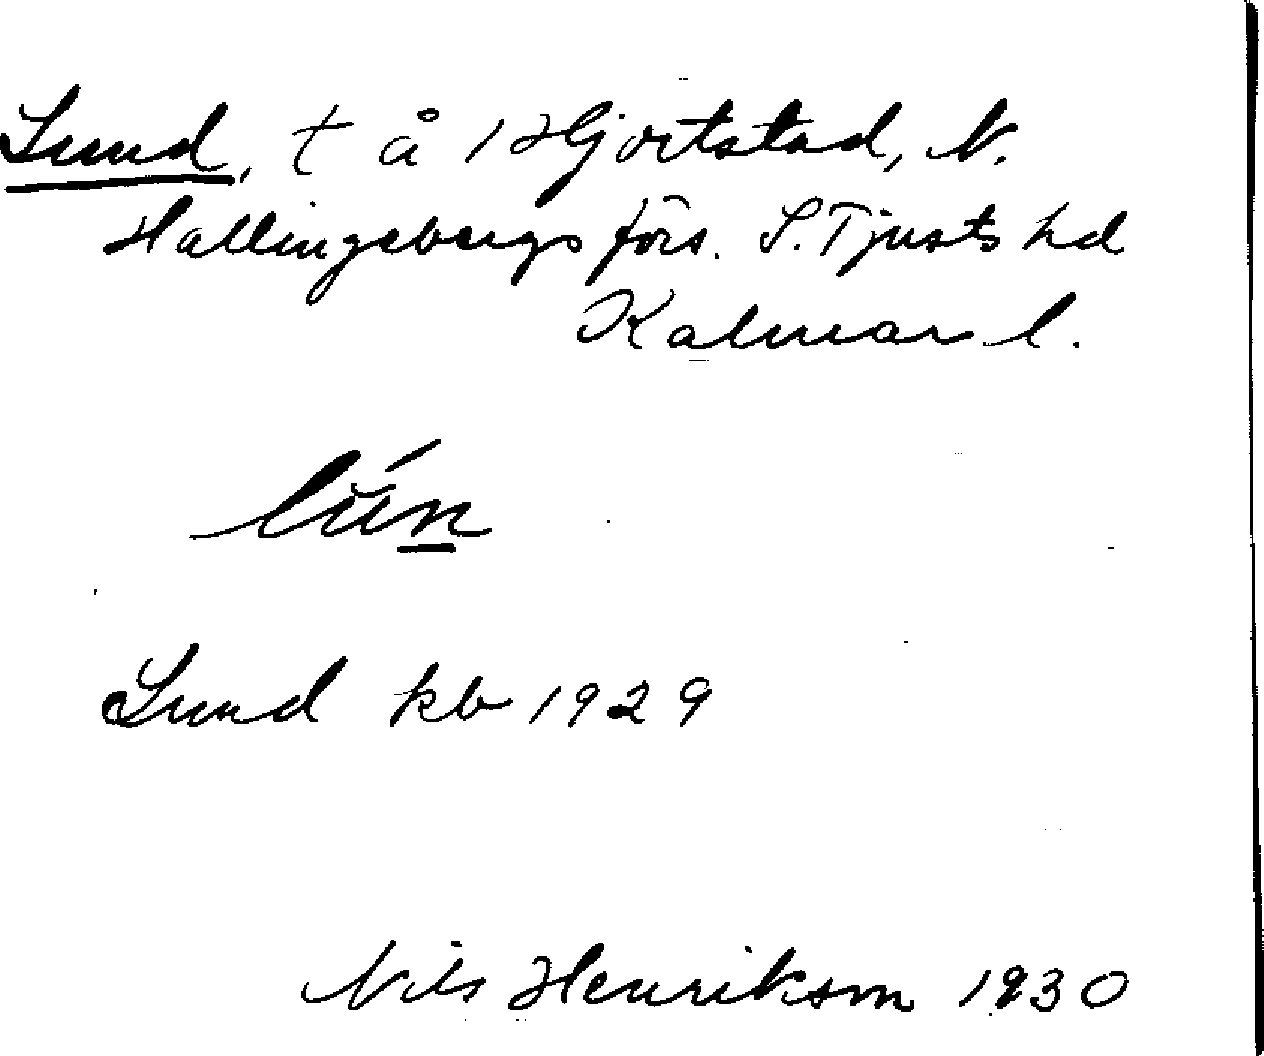 Lund, t å 1 Hjortstad, N.
Hallingebergs förs. S. Tjusts hd
Kalmar l.
Lund kb 1929
Nils Henrikson 1930